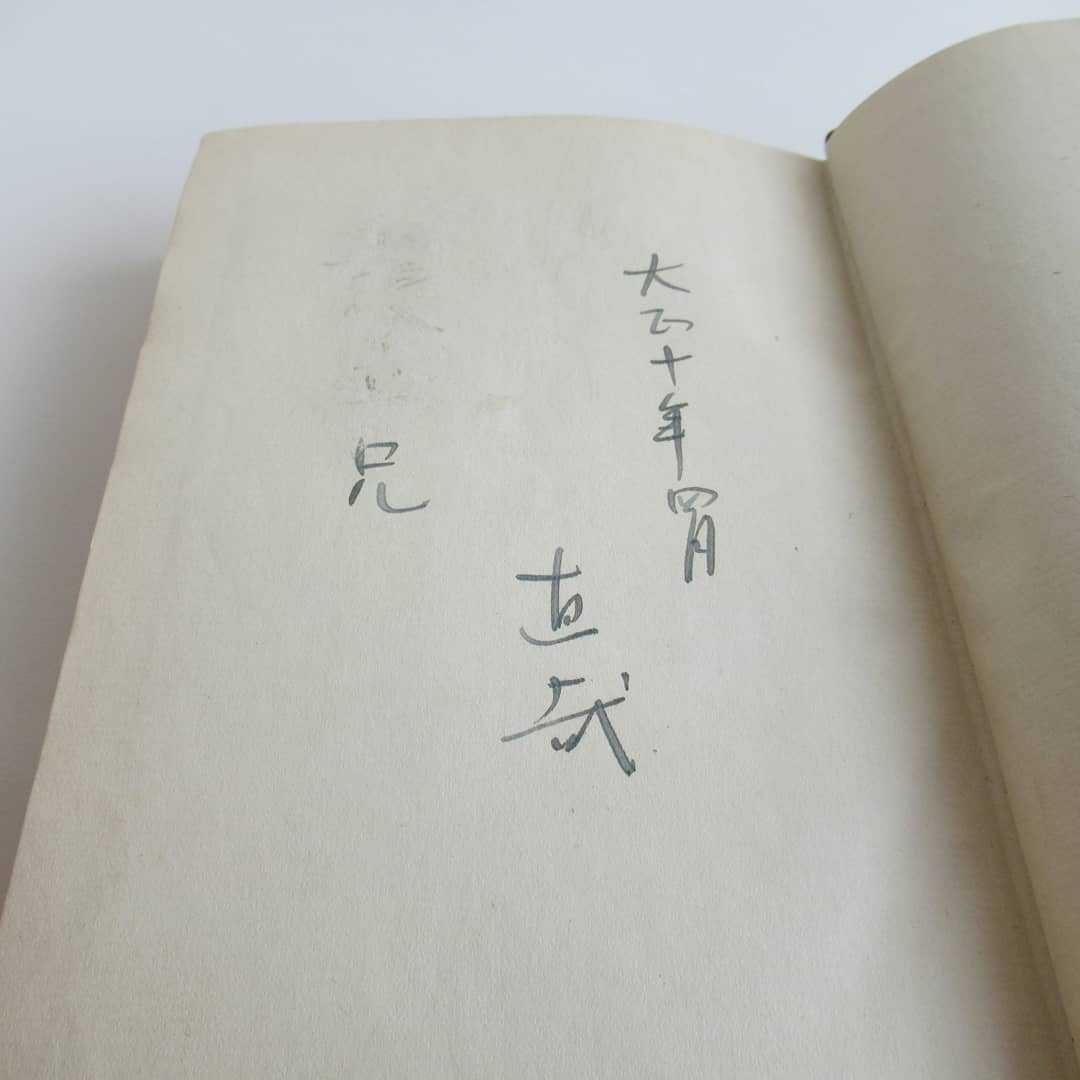 大正十年四月
直哉
兄